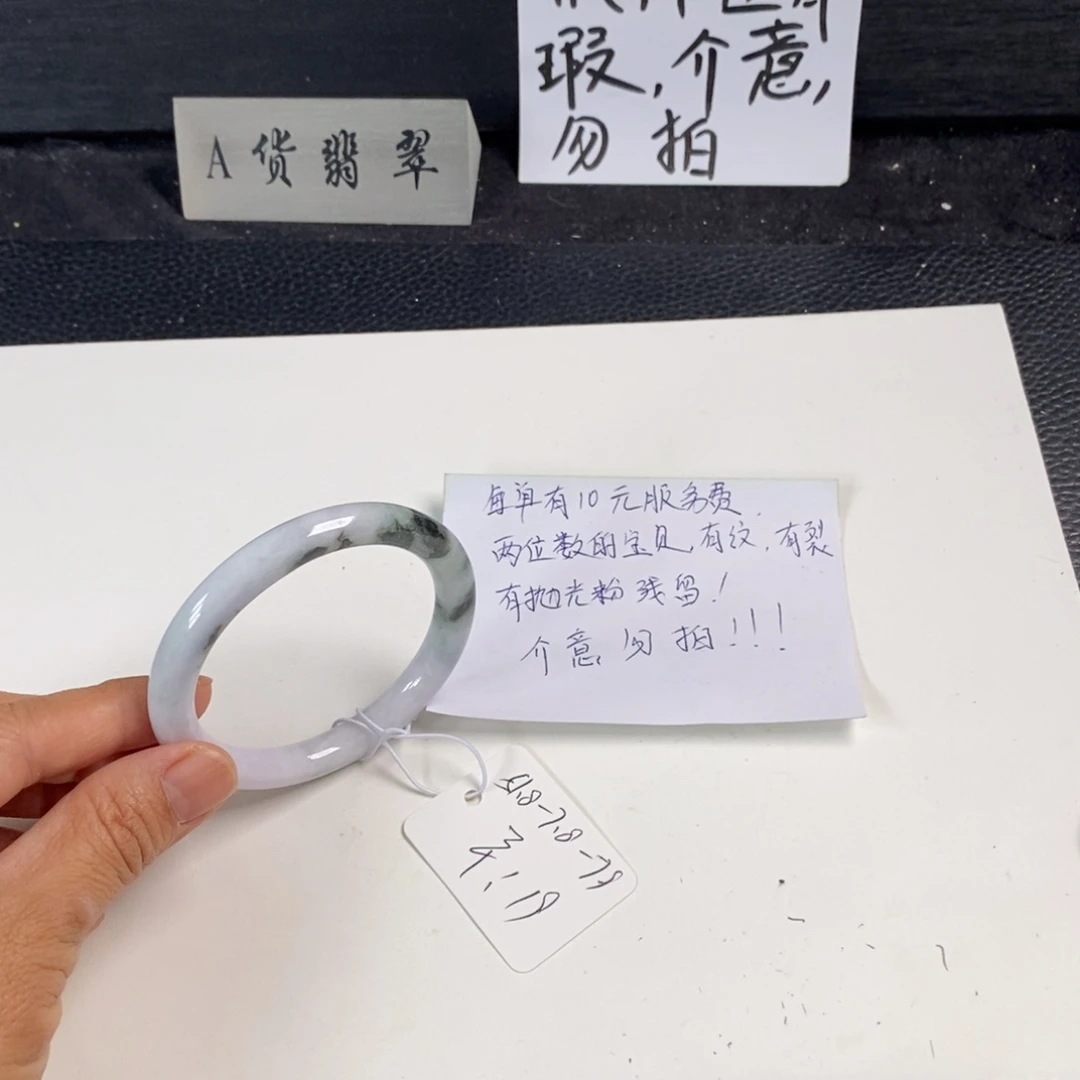 瑕，介意，
勿 拍
A货翡翠
每单有10元服务费.
两位数的宝贝，有纹，有裂
有抛光粉残留！
介意勿拍！！！